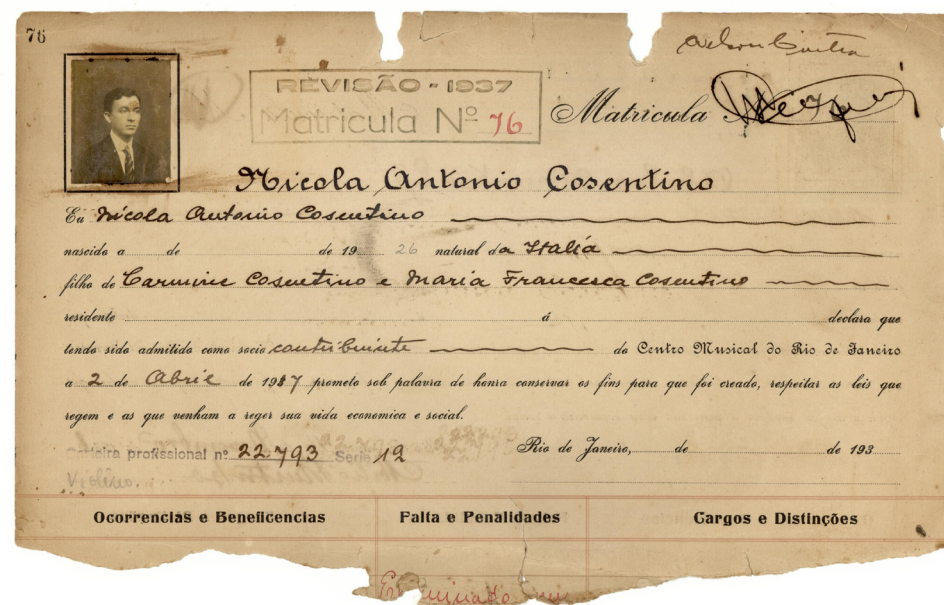 76
REVISÃO - 1937
Matricula Nº 76
Matricula
Nicola Antonio Cosentino
Eu Nicola Antonio Cosentino
nascido a de de 19 26 natural da Italia
filho de Carmine Cosentino e Maria Francesca Cosentino
residente á declara que
tendo sido admitido como socio contribuinte do Centro Musical do Rio de Janeiro
a 2 de Abril de 1917 prometo sob palavra de honra conservar os fins para que foi creado, respeitar as leis que
regem e as que venham a reger sua vida economica e social.
Carteira profissional nº 22.793 Serie 12
Rio de Janeiro, de de 193
Violino.
Ocorrencias e Beneficencias Falta e Penalidades Cargos e Distinções